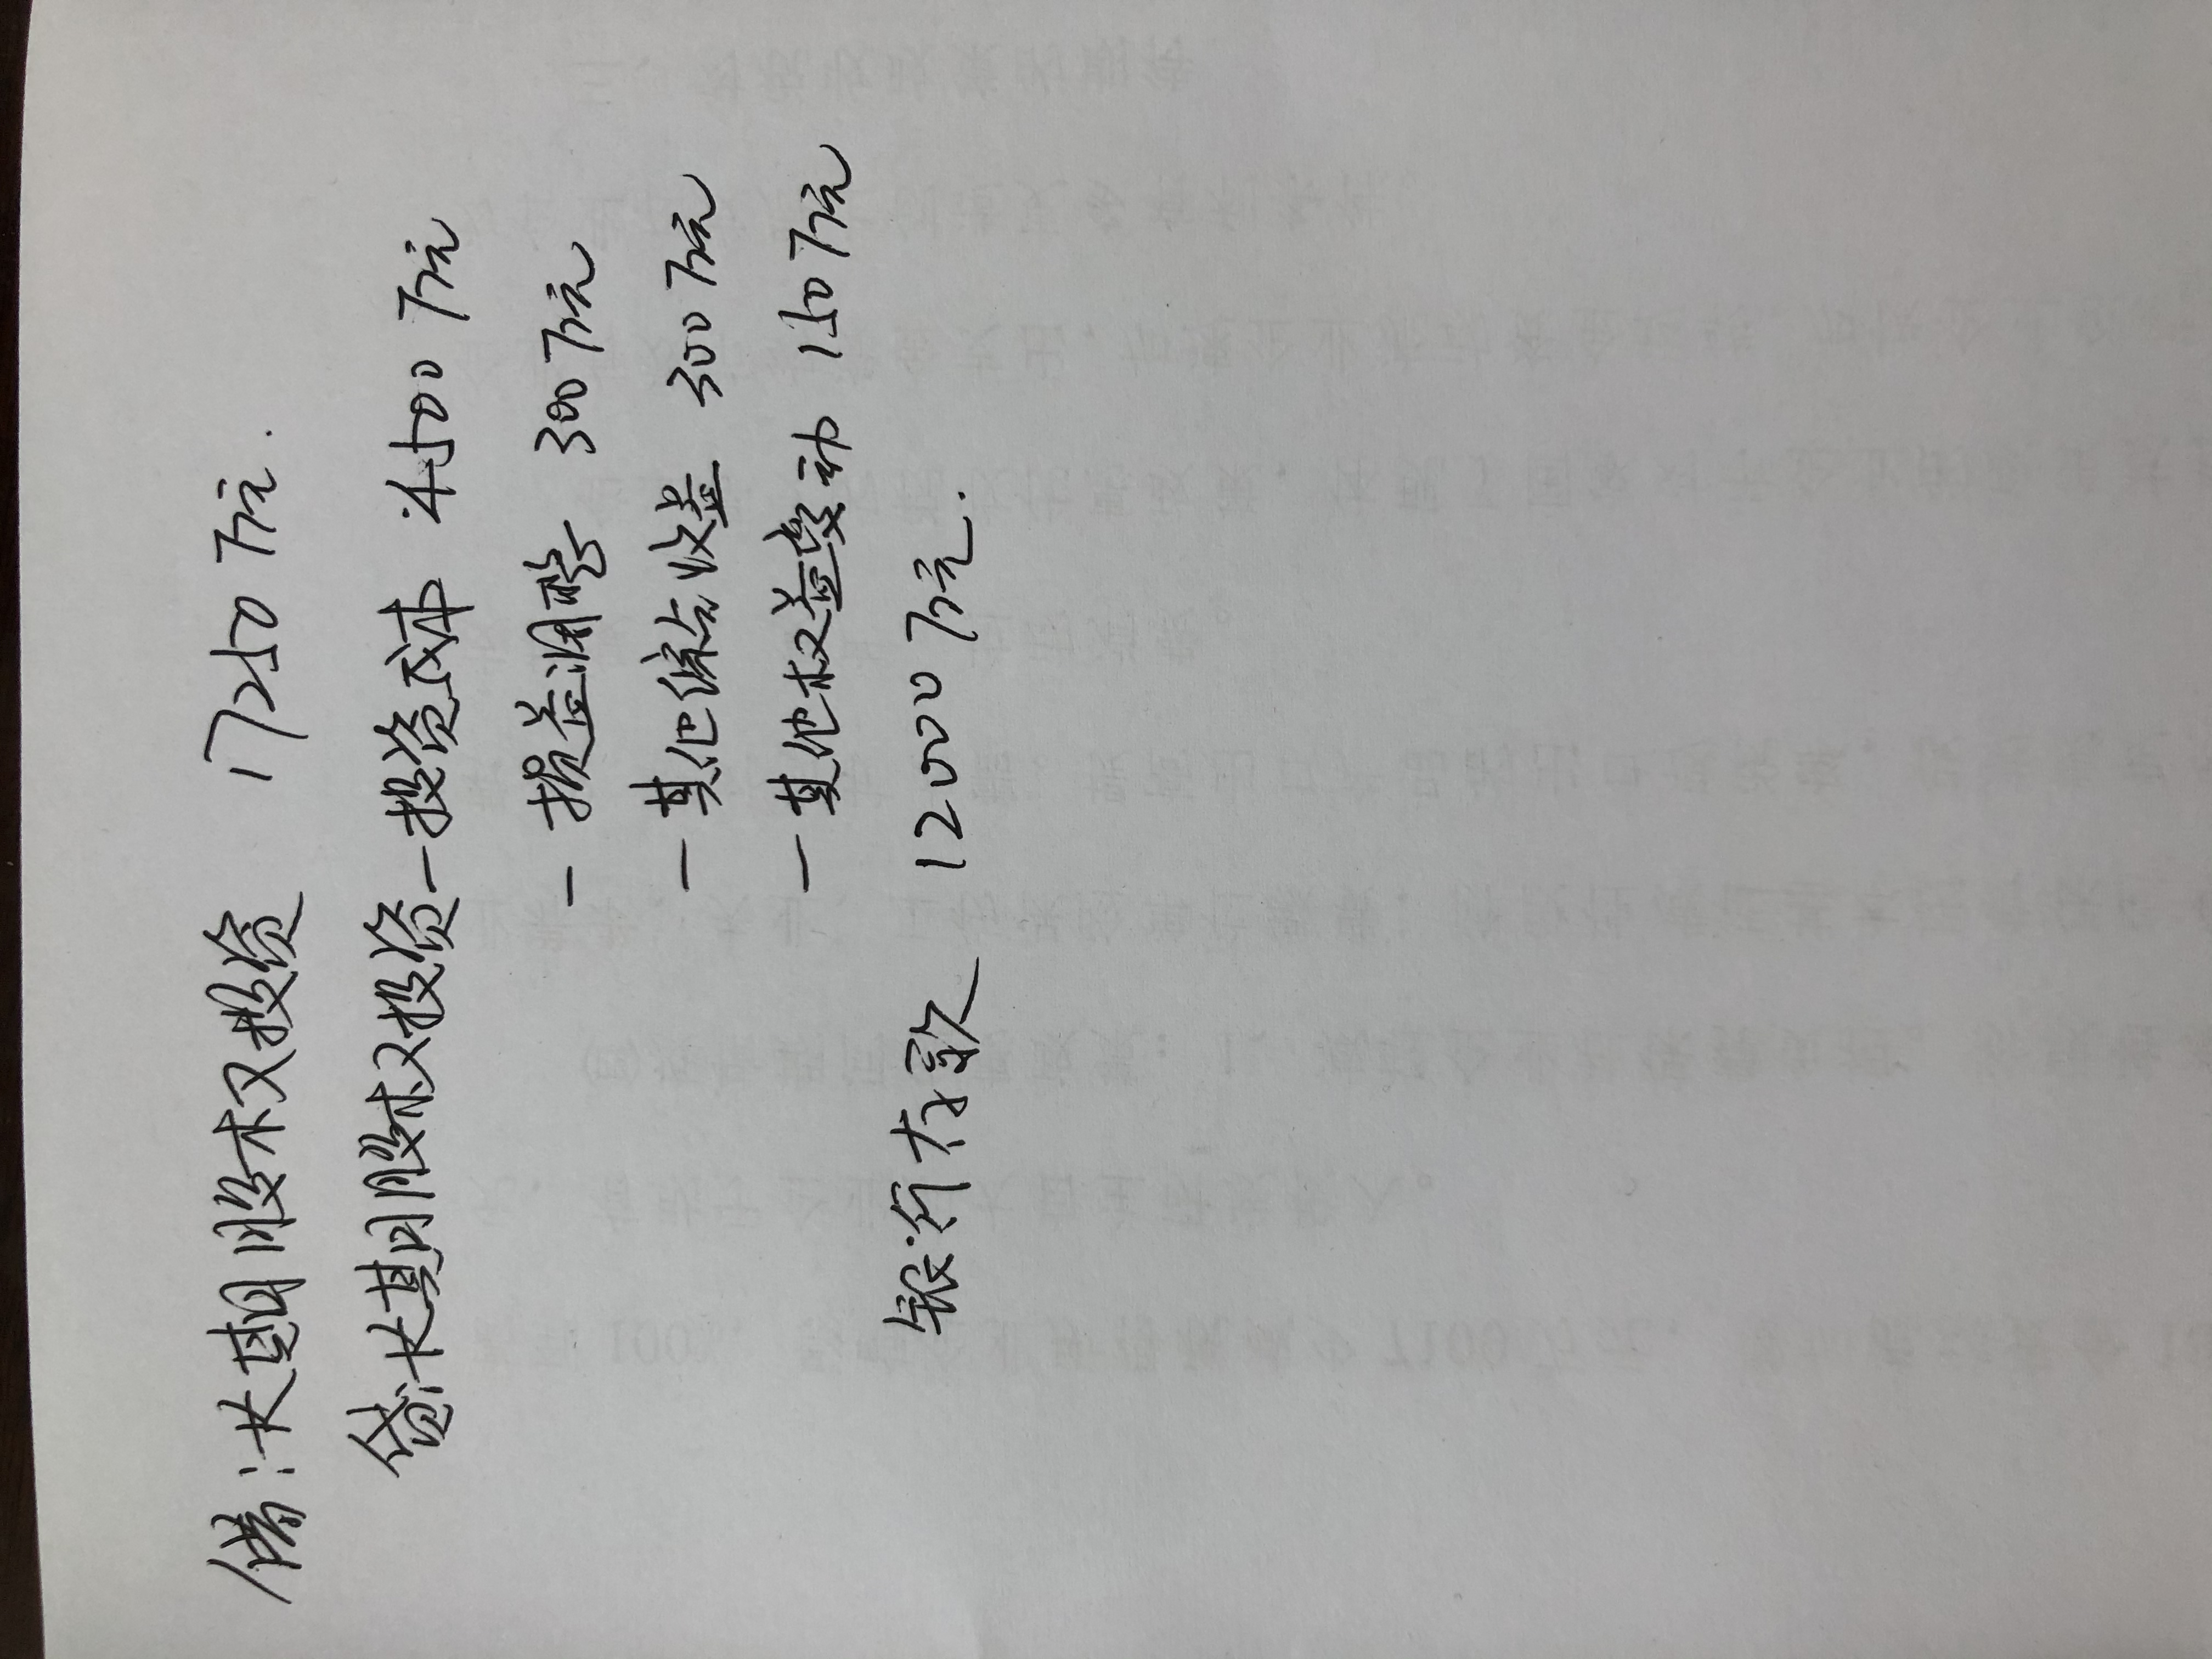 借:长期股权投资 17250万元.
贷:长期股权投资—投资成本 4500万元
—损益调整 300万元
—其他综合收益 300万元
—其他权益变动 150万元
银行存款 12000万元.